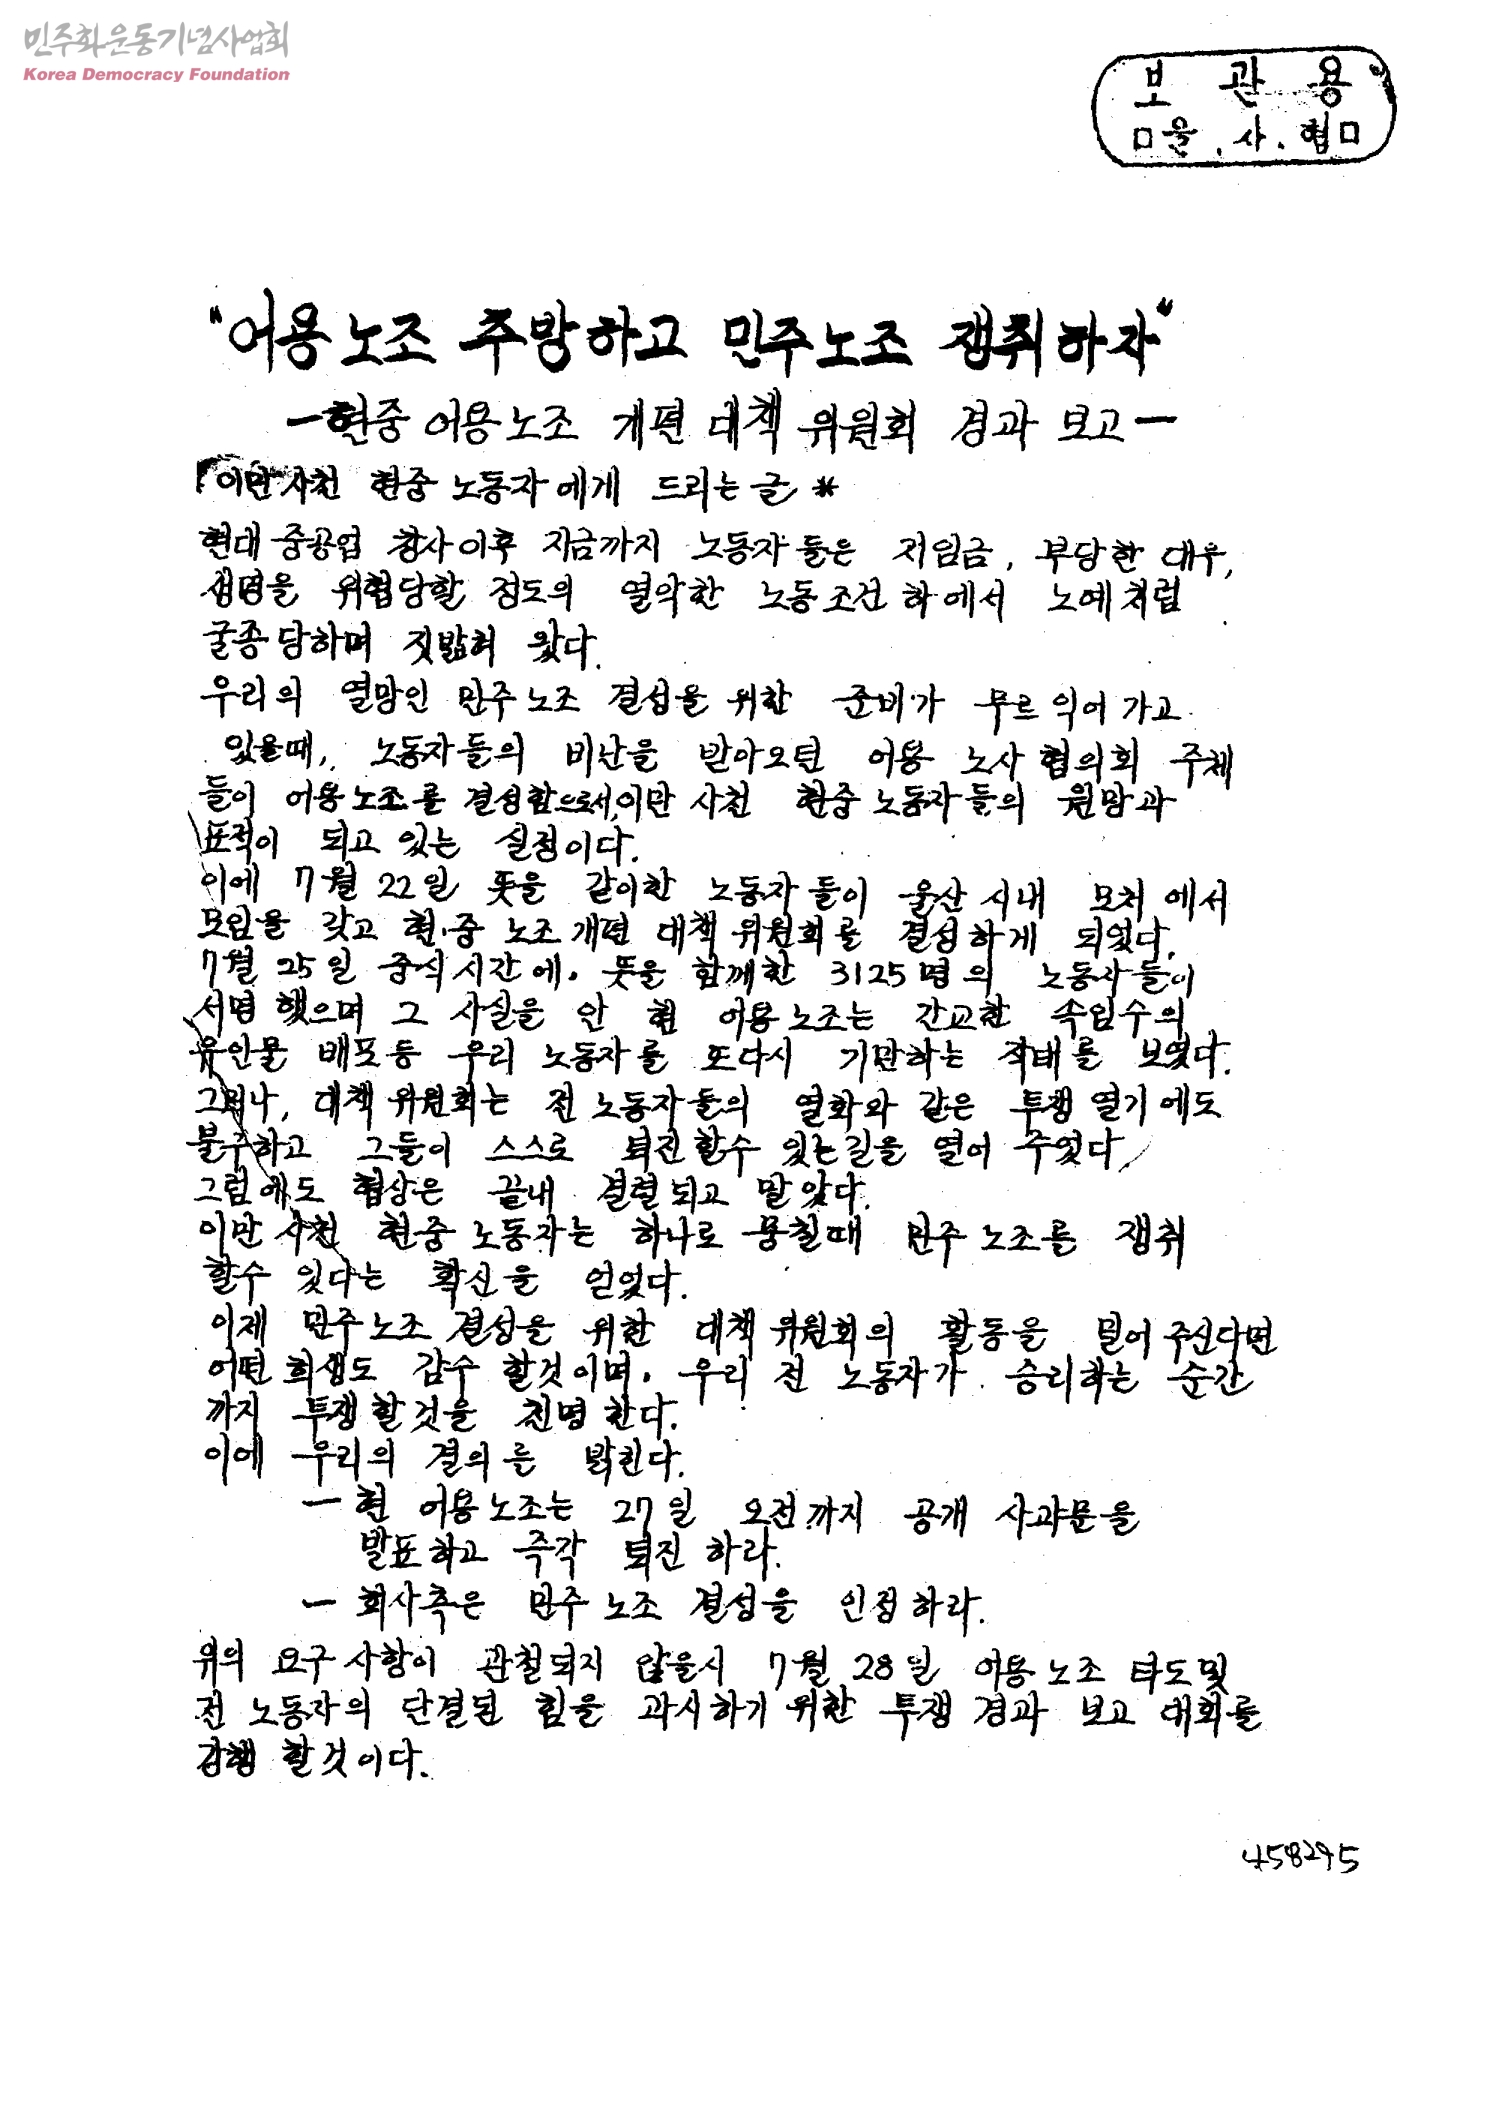 민주화운동기념사업회
Korea Democracy Foundation
보 관 용
□울.사.협□
"어용노조 추방하고 민주노조 쟁취하자"
- 현중 어용노조 개편 대책 위원회 경과 보고 -
이만사천 현중 노동자에게 드리는 글 *
현대 중공업 창사이후 지금까지 노동자들은 저임금, 부당한 대우,
생명을 위협당할 정도의 열악한 노동조건 하에서 노예처럼
굴종 당하며 짓밟혀 왔다.
우리의 열망인 민주노조 결성을 위한 준비가 무르익어 가고
있을때, 노동자들의 비난을 받아오던 어용 노사 협의회 주체
들이 어용노조를 결성함으로서, 이만 사천 현중 노동자들의 원망과
표적이 되고 있는 실정이다.
이에 7월 22일 뜻을 같이한 노동자들이 울산 시내 모처에서
모임을 갖고 현.중 노조개편 대책 위원회를 결성하게 되었다.
7월 25일 중식시간에. 뜻을 함께한 3125명의 노동자들이
서명 했으며 그 사실을 안 현 어용노조는 간교한 속임수의
유인물 배포등 우리 노동자를 또다시 기만하는 작태를 보였다.
그러나, 대책 위원회는 전 노동자들의 열화와 같은 투쟁 열기에도
불구하고 그들이 스스로 퇴진 할수 있는길을 열어 주었다
그럼에도 협상은 끝내 결렬되고 말았다.
이만 사천 현중 노동자는 하나로 뭉칠때 민주 노조를 쟁취
할수 있다는 확신을 얻었다.
이제 민주노조 결성을 위한 대책 위원회의 활동을 밀어 주신다면
어떤 희생도 감수 할것이며. 우리 전 노동자가 승리하는 순간
까지 투쟁할것을 천명한다.
이에 우리의 결의를 밝힌다.
- 현 어용노조는 27일 오전까지 공개 사과문을
발표하고 즉각 퇴진 하라.
- 회사측은 민주 노조 결성을 인정하라.
위의 요구 사항이 관철되지 않을시 7월 28일 어용노조 타도및
전 노동자의 단결된 힘을 과시하기 위한 투쟁 경과 보고 대회를
강행 할것이다.
458295